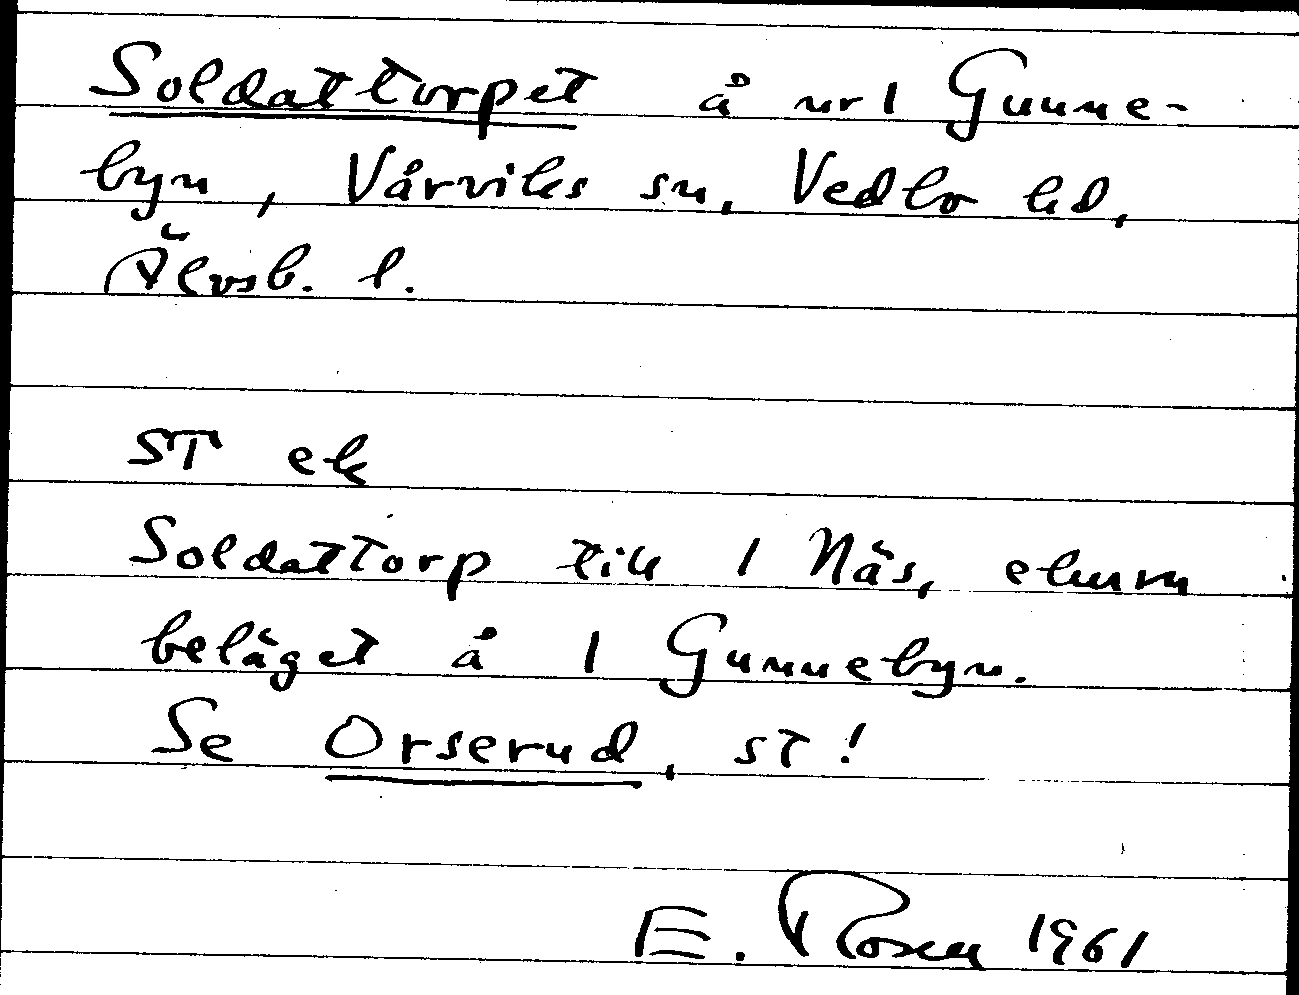 Soldattorpet å nr 1 Gunne-
byn, Vårviks sn, Vedbo hd,
Älvsb. l.
ST ek
Soldattorp till 1 Näs, ehuru
beläget å 1 Gunnebyn.
Se Orserud, ST!
E. Rosen 1961